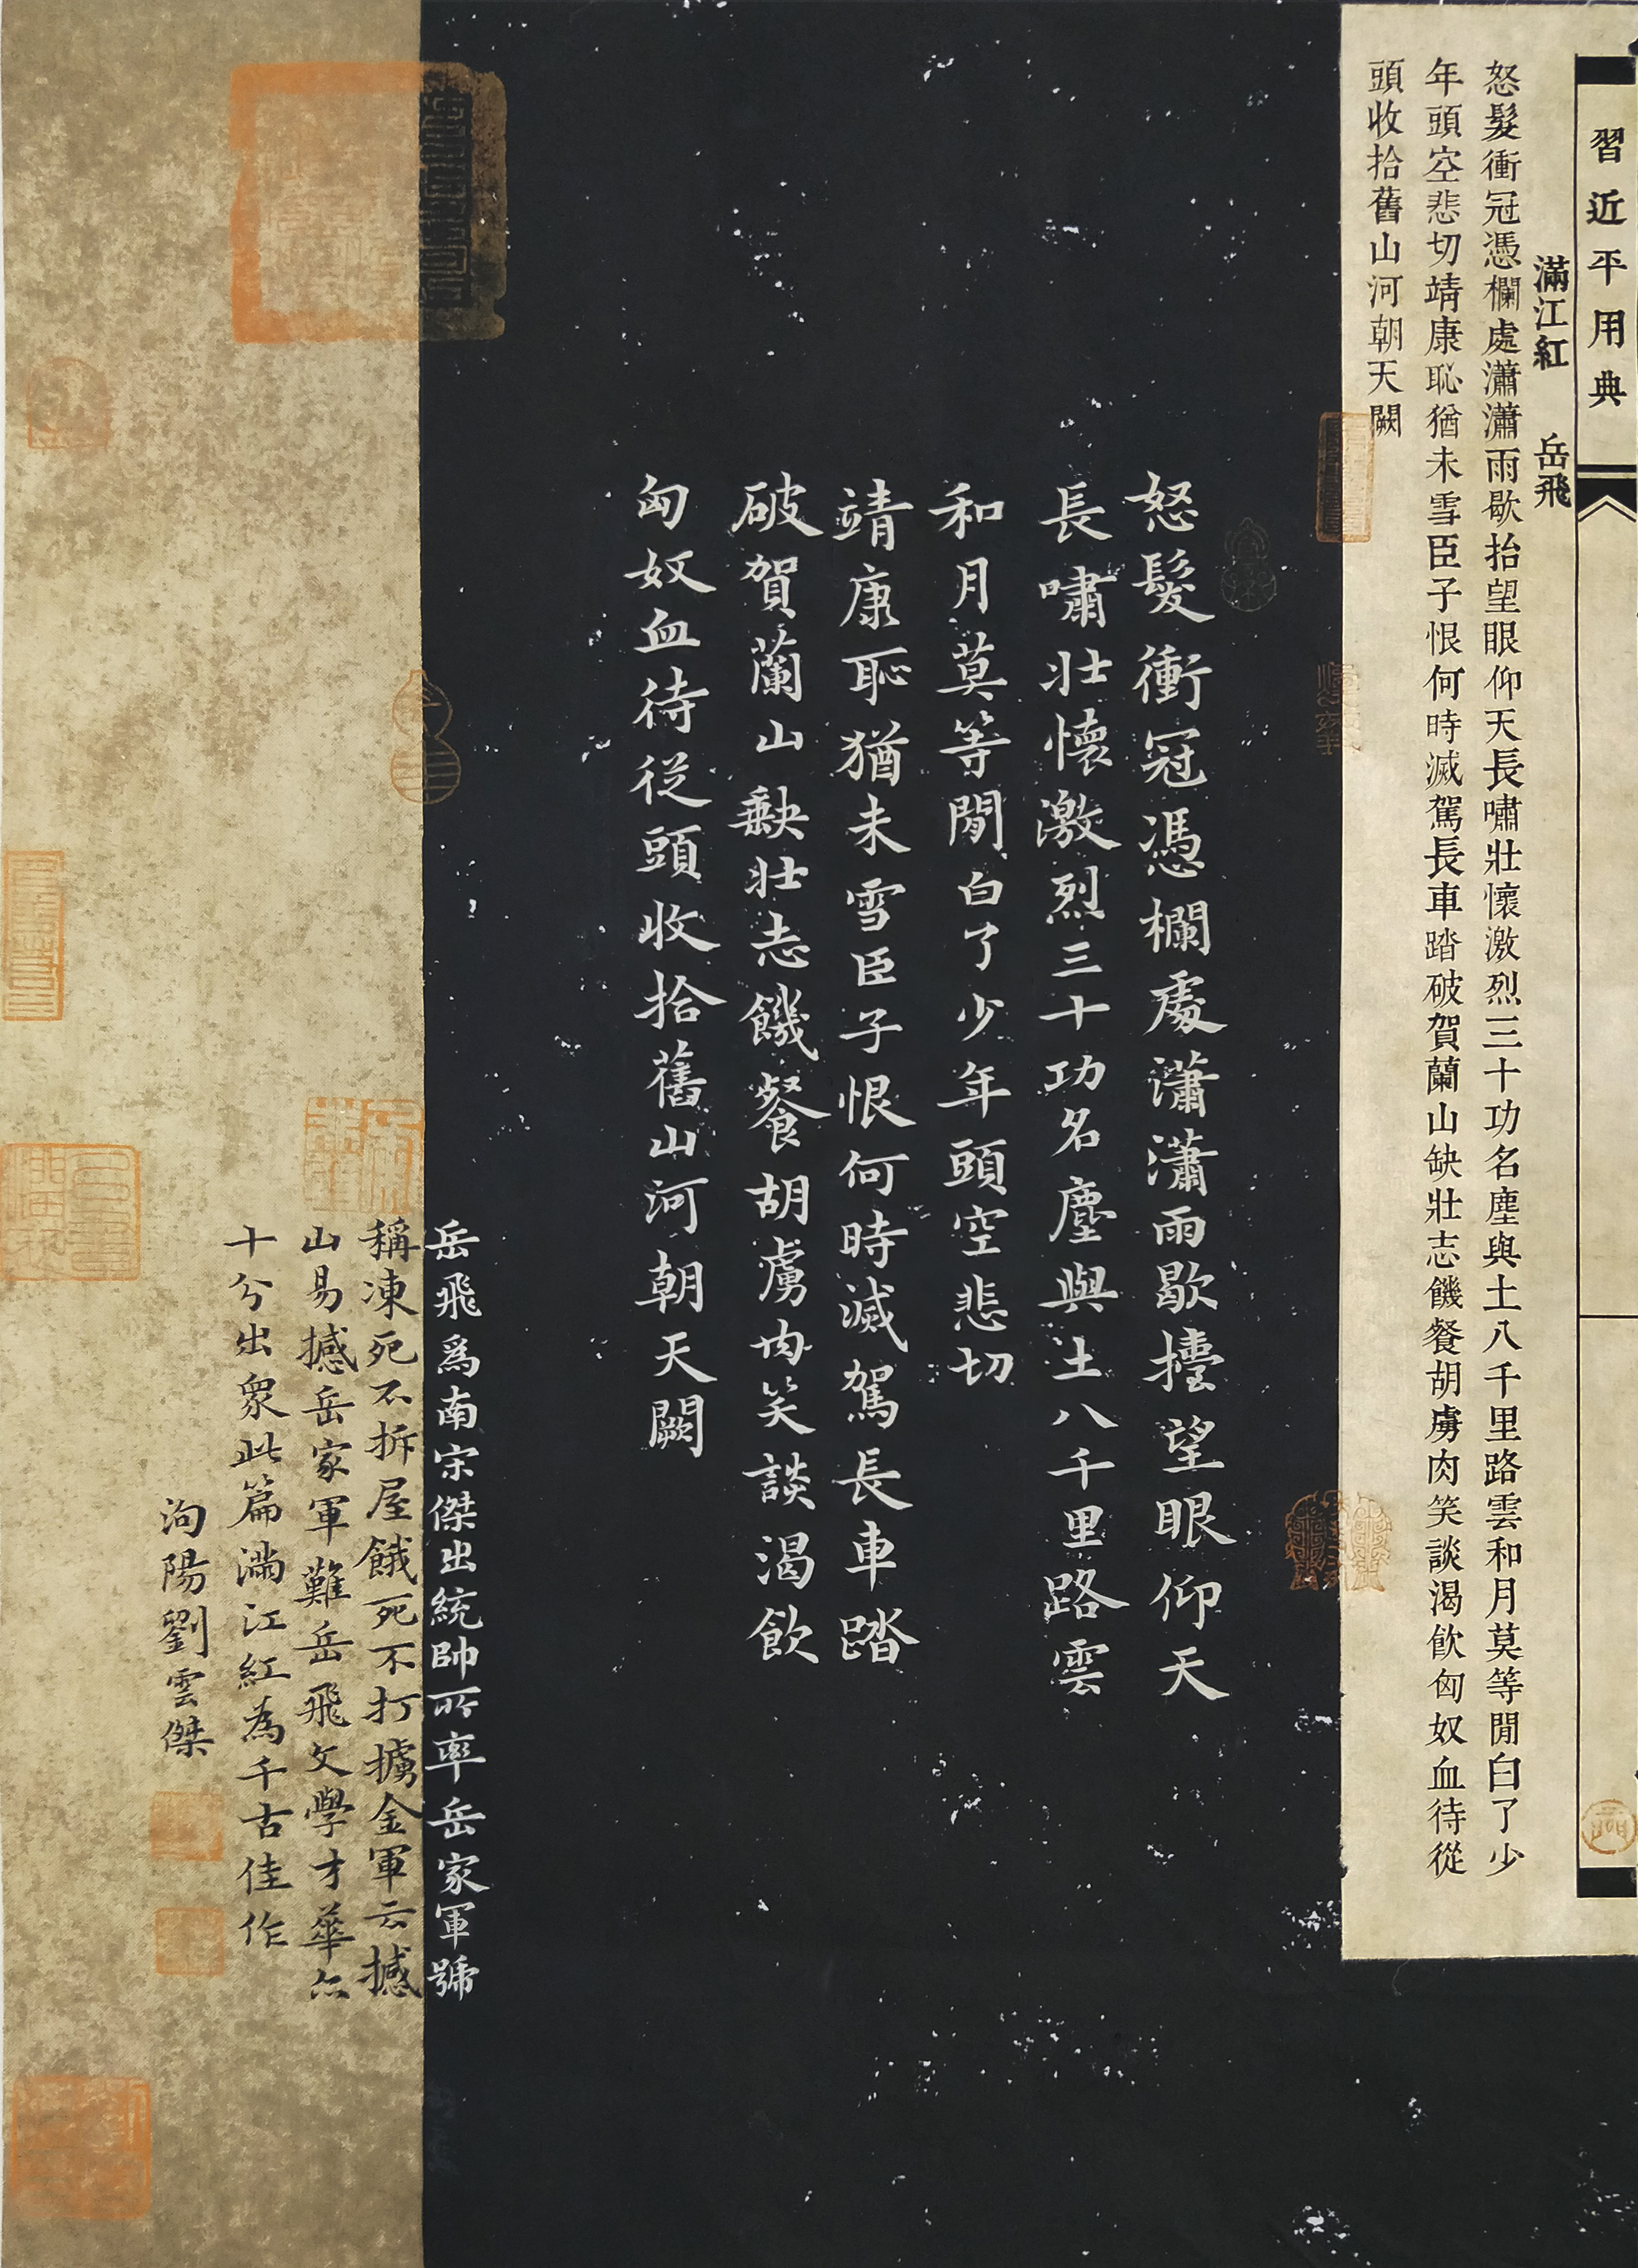 習近平用典
滿江紅 岳飛
怒髮衝冠憑欄處瀟瀟雨歇抬望眼仰天長嘯壯懷激烈三十功名塵與土八千里路雲和月莫等閒白了少
年頭空悲切靖康恥猶未雪臣子恨何時滅駕長車踏破賀蘭山缺壯志饑餐胡虜肉笑談渴飲匈奴血待從
頭收拾舊山河朝天闕
怒髮衝冠憑欄處瀟瀟雨歇擡望眼仰天
長嘯壯懷激烈三十功名塵與土八千里路雲
和月莫等閒白了少年頭空悲切
靖康恥猶未雪臣子恨何時滅駕長車踏
破賀蘭山缺壯志饑餐胡虜肉笑談渴飲
匈奴血待從頭收拾舊山河朝天闕
岳飛爲南宋傑出統帥所率岳家軍號
稱凍死不拆屋餓死不打擄金軍云撼
山易撼岳家軍難岳飛文學才華亦
十分出眾此篇滿江紅為千古佳作
泃陽劉雲傑